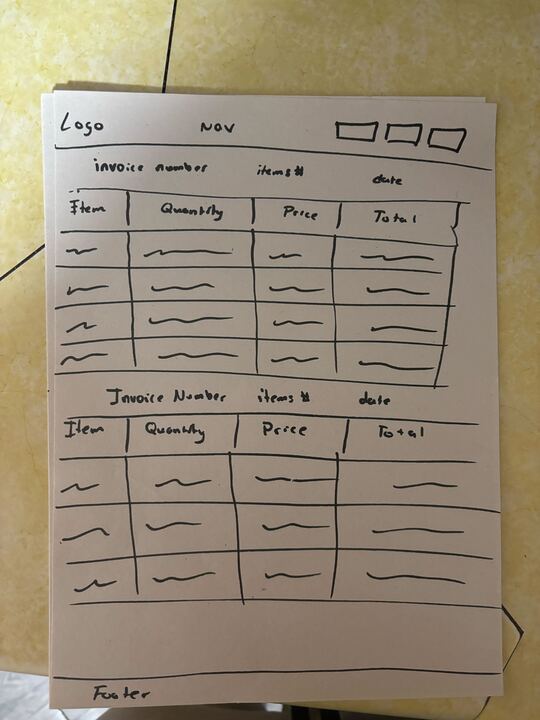 Logo Nav
invoice number items# date
Item Quantity Price Total
Invoice Number items # date
Item Quantity Price Total
Footer